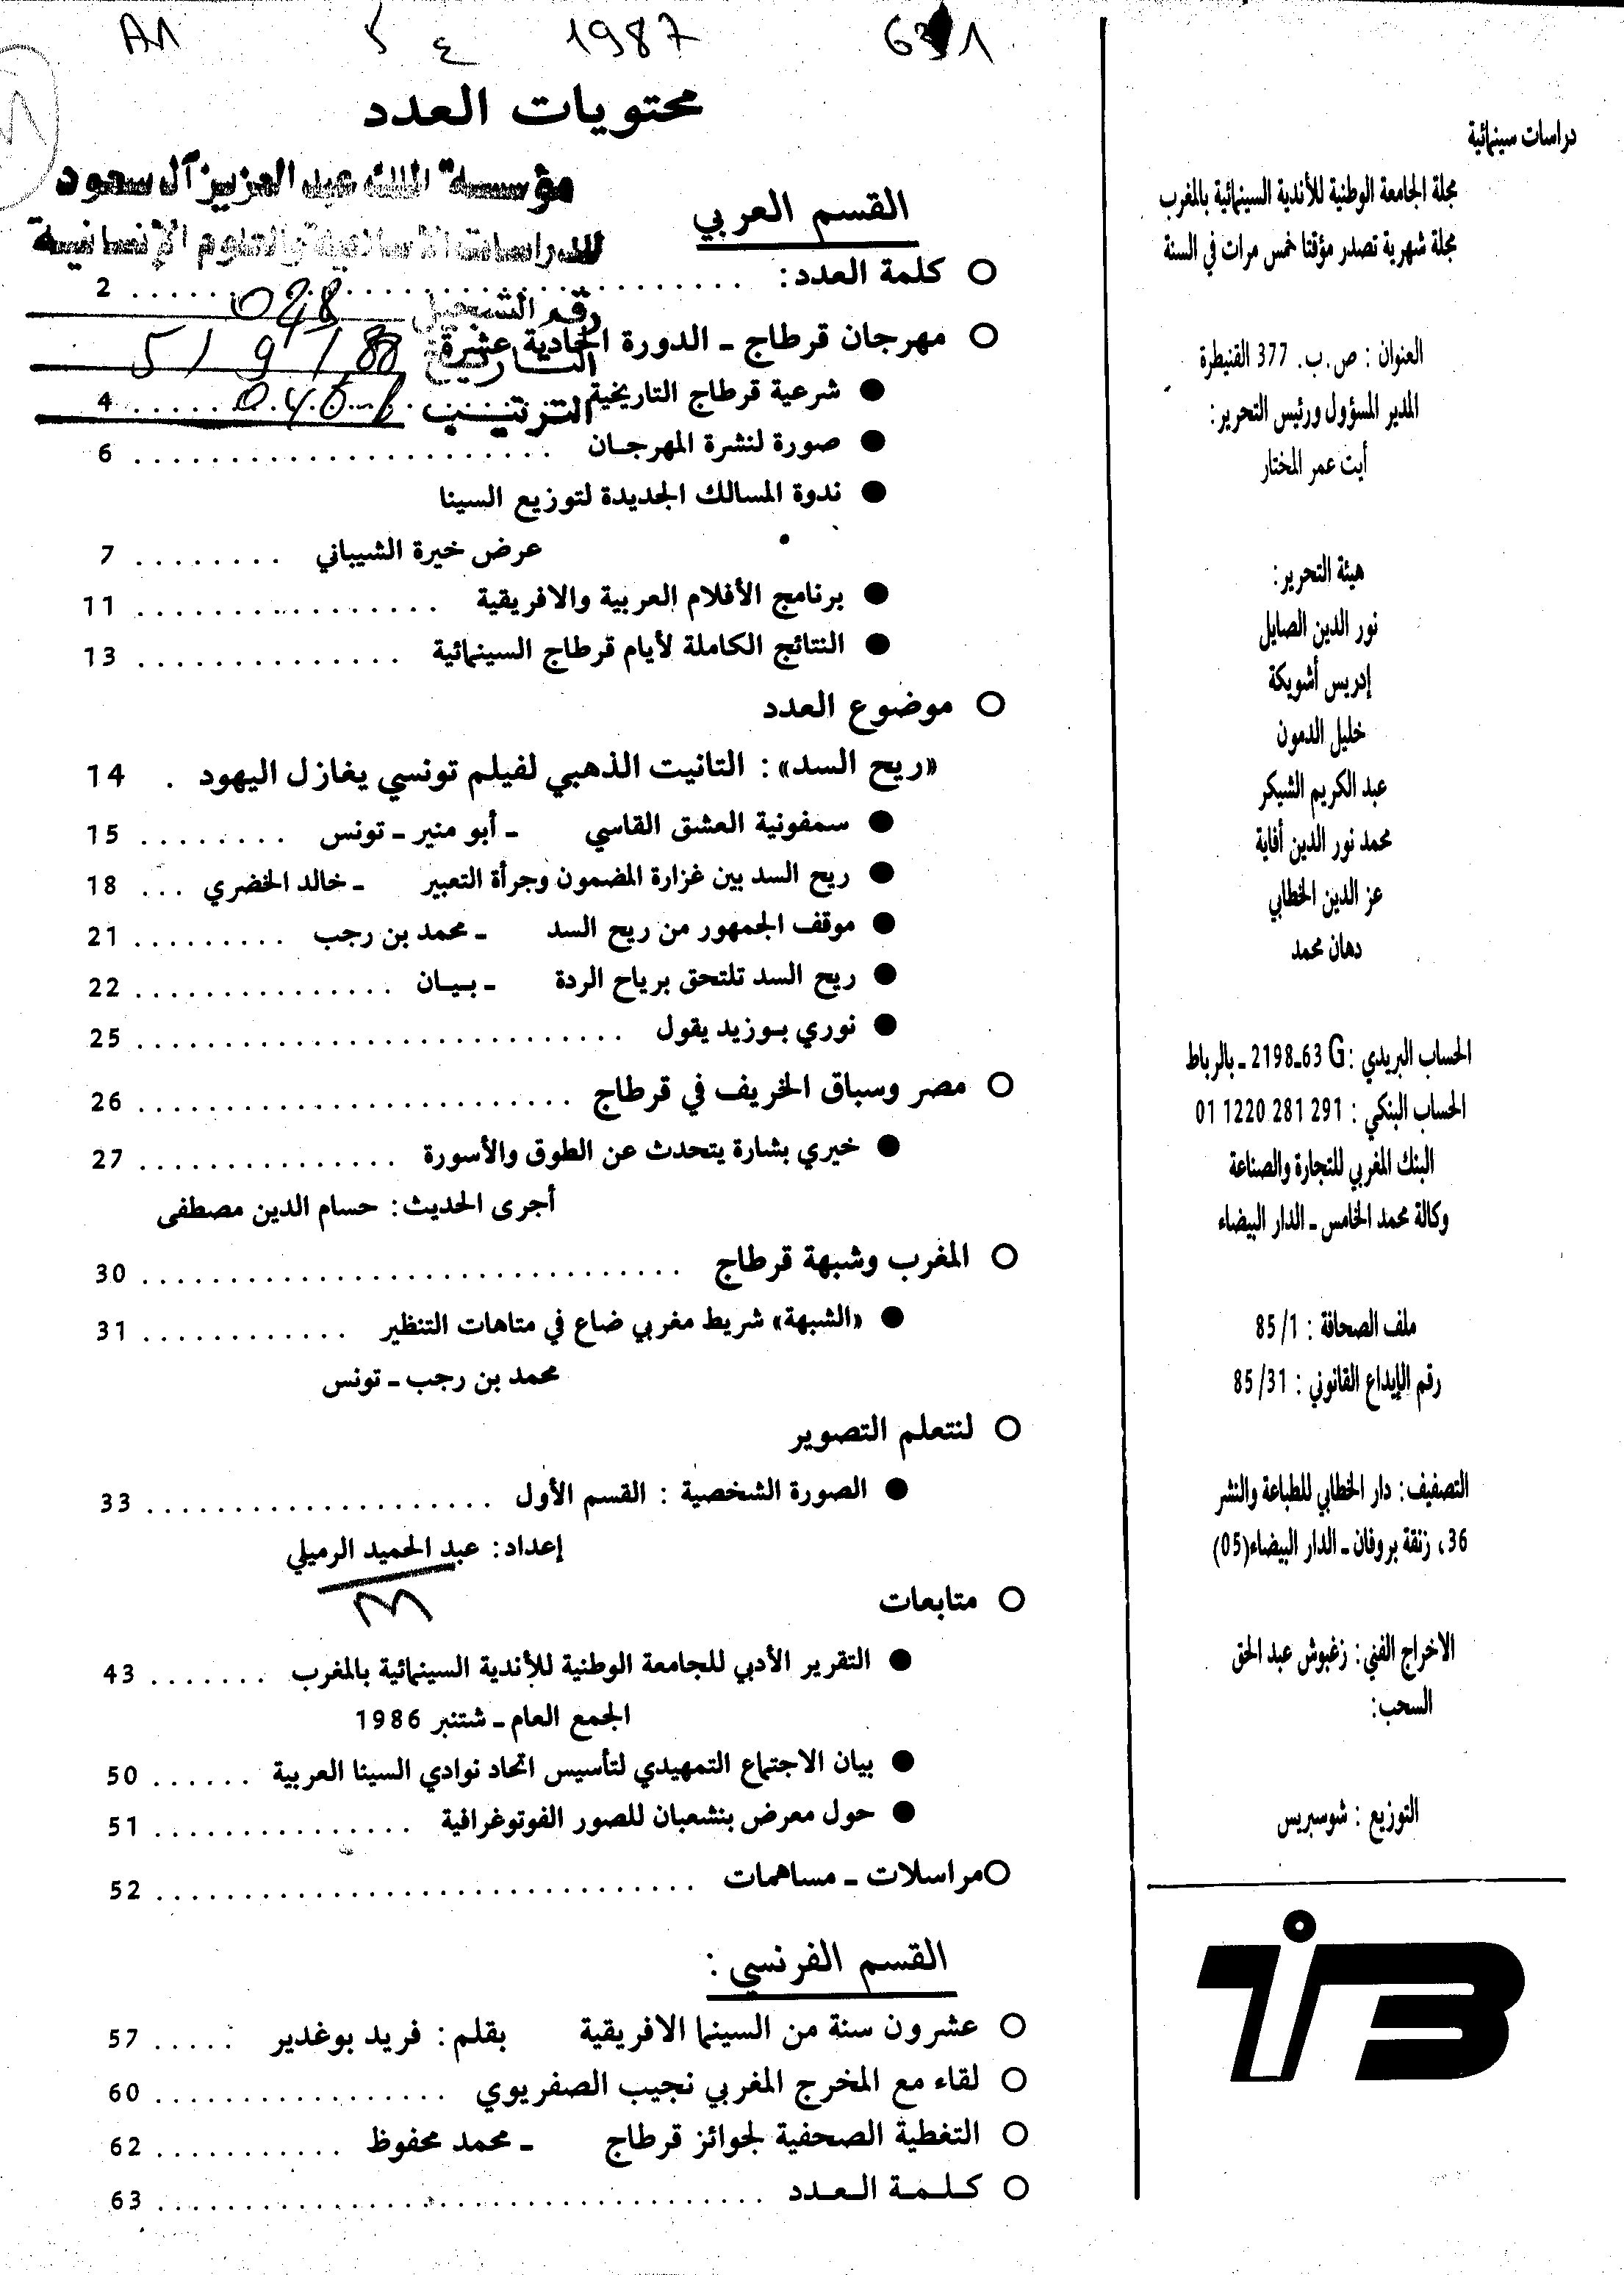 1987
محتويات العدد
مؤسسة الملك عبد العزيز آل سعود
للدراسات الاسلامية والعلوم الإنسانية
رقم التسجيل
التاريخ 5/9/88
الترتيب
القسم العربي
○ كلمة العدد: . . . . . . . . 2
○ مهرجان قرطاج ـ الدورة الحادية عشرة
● شرعية قرطاج التاريخية . . . . . . . . 4
● صورة لنشرة المهرجـان . . . . . . . . 6
● ندوة المسالك الجديدة لتوزيع السينما
عرض خيرة الشيباني . . . . . . . . 7
● برنامج الأفلام العربية والافريقية . . . . . . . . 11
● النتائج الكاملة لأيام قرطاج السينمائية . . . . . . . . 13
○ موضوع العدد
«ريح السد» : التانيت الذهبي لفيلم تونسي يغازل اليهود . 14
● سمفونية العشق القاسي ـ أبو منير ـ تونس . . . . . . . . 15
● ريح السد بين غزارة المضمون وجرأة التعبير ـ خالد الخضري . . . 18
● موقف الجمهور من ريح السد ـ محمد بن رجب . . . . . . . . 21
● ريح السد تلتحق برياح الردة ـ بـيـان . . . . . . . . 22
● نوري بـوزيد يقول . . . . . . . . 25
○ مصر وسباق الخريف في قرطاج . . . . . . . . 26
● خيري بشارة يتحدث عن الطوق والأسورة . . . . . . . . 27
أجرى الحديث: حسام الدين مصطفى
○ المغرب وشبهة قرطاج . . . . . . . . 30
● «الشبهة» شريط مغربي ضاع في متاهات التنظير . . . . . . . . 31
محمد بن رجب ـ تونس
○ لنتعلم التصوير
● الصورة الشخصية : القسم الأول . . . . . . . . 33
إعداد: عبد الحميد الرميلي
○ متابعات
● التقرير الأدبي للجامعة الوطنية للأندية السينمائية بالمغرب . . . . . . . 43
الجمع العام ـ شتنبر 1986
● بيان الاجتماع التمهيدي لتأسيس اتحاد نوادي السينما العربية . . . . . . 50
● حول معرض بنشعبان للصور الفوتوغرافية . . . . . . . . 51
○ مراسلات ـ مساهمات . . . . . . . . 52
القسم الفرنسي :
○ عشرون سنة من السينما الافريقية بقلم : فريد بوغدير . . . . . 57
○ لقاء مع المخرج المغربي نجيب الصفريوي . . . . . . . . 60
○ التغطية الصحفية لجوائز قرطاج ـ محمد محفوظ . . . . . . . . 62
○ كـلـمـة الـعـدد . . . . . . . . 63
دراسات سينمائية
مجلة الجامعة الوطنية للأندية السينمائية بالمغرب
مجلة شهرية تصدر مؤقتا خمس مرات في السنة
العنوان : ص.ب. 377 القنيطرة
المدير المسؤول ورئيس التحرير:
أيت عمر المختار
هيئة التحرير:
نور الدين الصايل
إدريس أشويكة
خليل الدمون
عبد الكريم الشيكر
محمد نور الدين أفاية
عز الدين الخطابي
دهان محمد
الحساب البريدي : 2198ـ63 G ـ بالرباط
الحساب البنكي : 01 1220 281 291
البنك المغربي للتجارة والصناعة
وكالة محمد الخامس ـ الدار البيضاء
ملف الصحافة : 85/1
رقم الإيداع القانوني : 85/31
التصفيف: دار الخطابي للطباعة والنشر
36، زنقة بروفان ـ الدار البيضاء (05)
الاخراج الفني: زغبوش عبد الحق
السحب:
التوزيع : شوسبريس